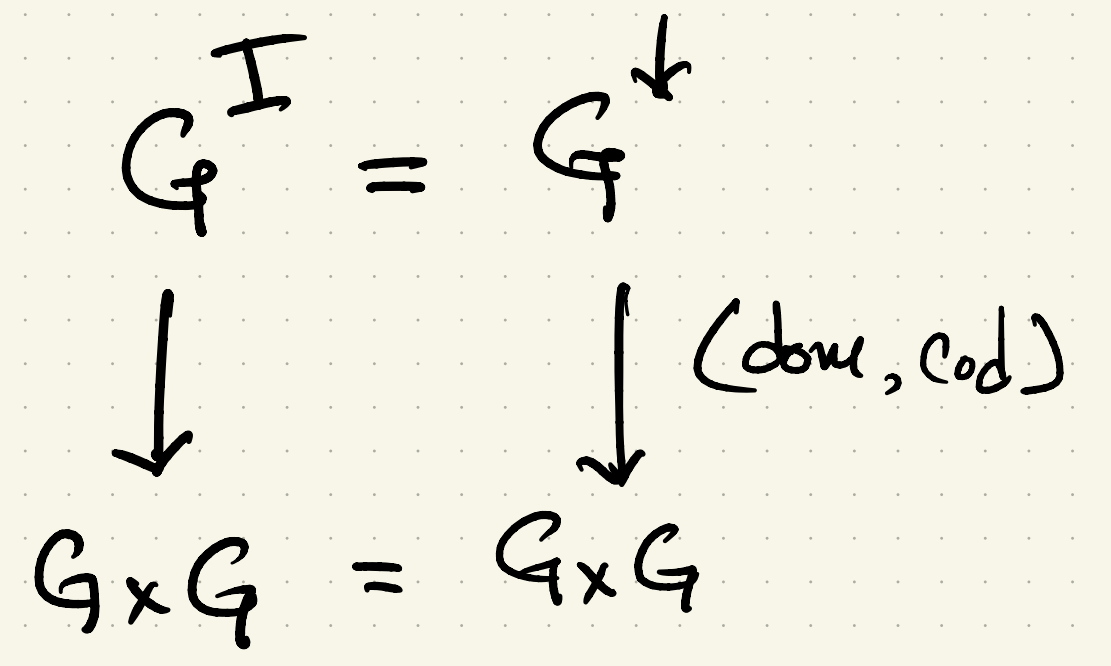 G^I = G^↓
↓ ↓ (dom, cod)
G × G = G × G